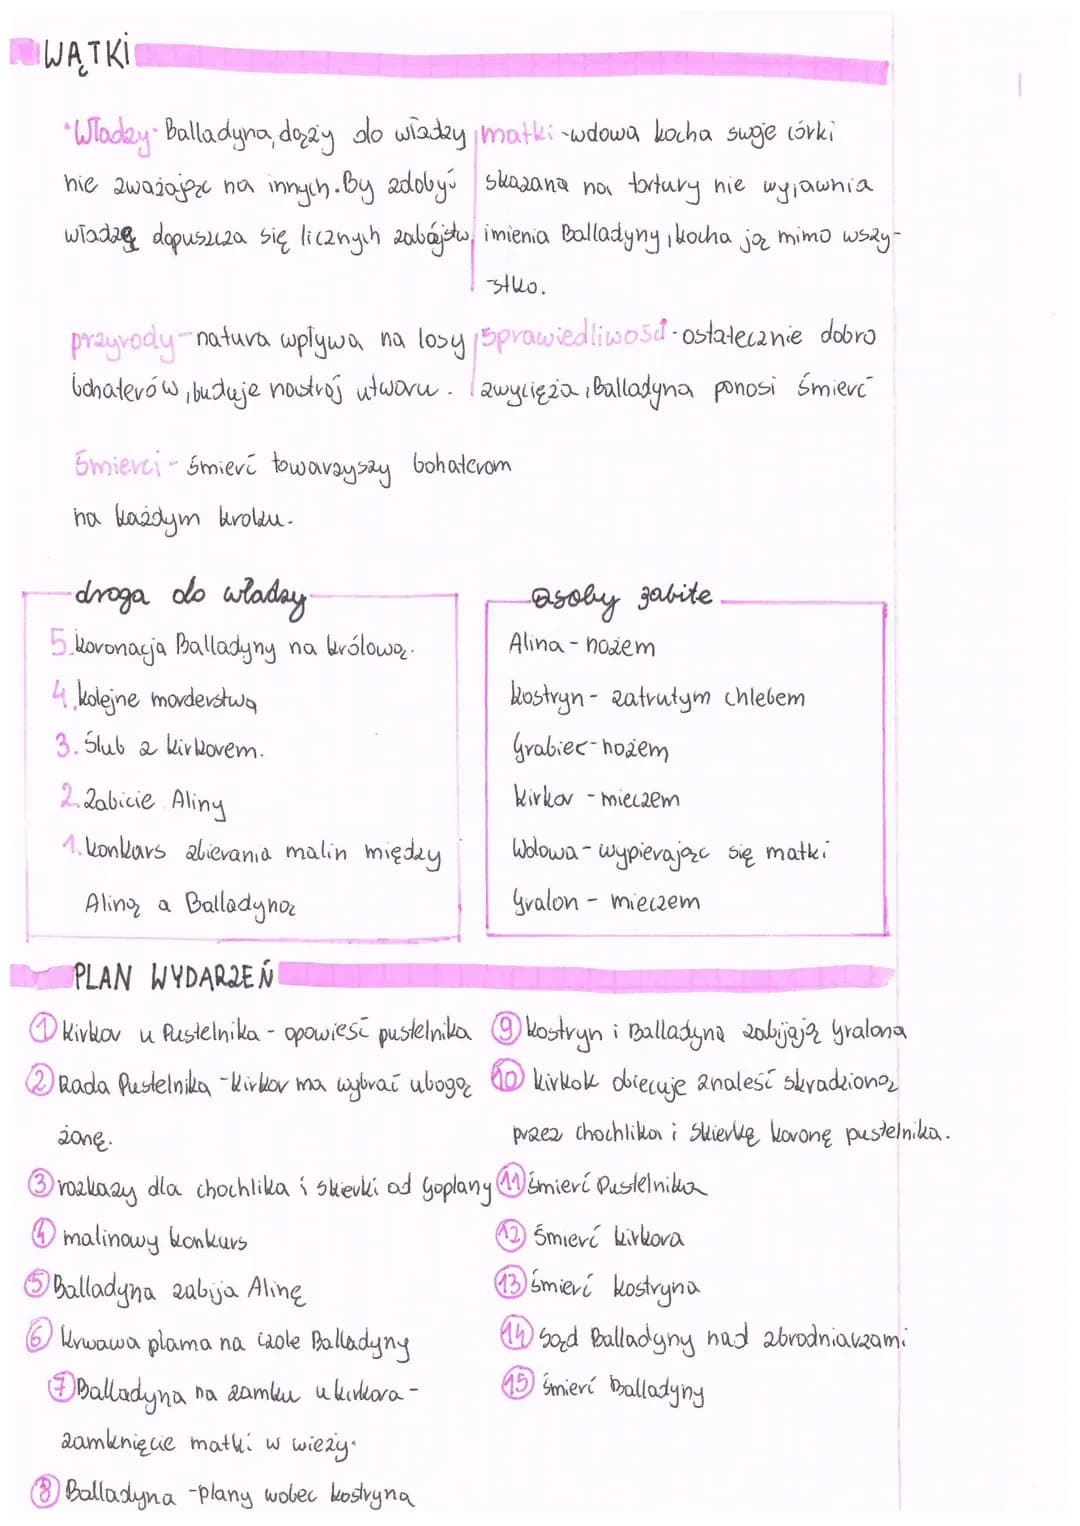 WĄTKI
• Władzy - Balladyna dąży do władzy
nie zważając na innych. By zdobyć
władzę dopuszcza się licznych zabójstw
matki - wdowa kocha swoje córki
skazana na tortury nie wyjawnia
imienia Balladyny, kocha ją mimo wszy-
stko.
przyrody - natura wpływa na losy
bohaterów, buduje nastrój utworu.
Sprawiedliwość - ostatecznie dobro
zwycięża, Balladyna ponosi śmierć
Śmierci - śmierć towarzyszy bohaterom
na każdym kroku.
droga do władzy
5. koronacja Balladyny na królową.
4. kolejne morderstwa
3. Ślub z kirkorem.
2. Zabicie Aliny
1. konkurs zbierania malin między
Aliną a Balladyną
osoby zabite
Alina - nożem
kostryn - zatrutym chlebem
Grabiec - nożem
kirkor - mieczem
Wdowa - wypierając się matki
Gralon - mieczem
PLAN WYDARZEŃ
1 kirkor u Pustelnika - opowieść pustelnika
2 Rada Pustelnika - kirkor ma wybrać ubogą
żonę.
3 rozkazy dla chochlika i skierki od Goplany
4 malinowy konkurs
5 Balladyna zabija Alinę
6 krwawa plama na czole Balladyny
7 Balladyna na zamku u kirkora -
zamknięcie matki w wieży.
8 Balladyna - plany wobec kostryna
9 kostryn i Balladyna zabijają Gralona
10 kirkok obiecuje znaleść skradzioną
przez chochlika i Skierkę koronę pustelnika.
11 śmierć Pustelnika
12 śmierć kirkora
13 śmierć kostryna
14 Sąd Balladyny nad zbrodniarzami
15 śmierć Balladyny